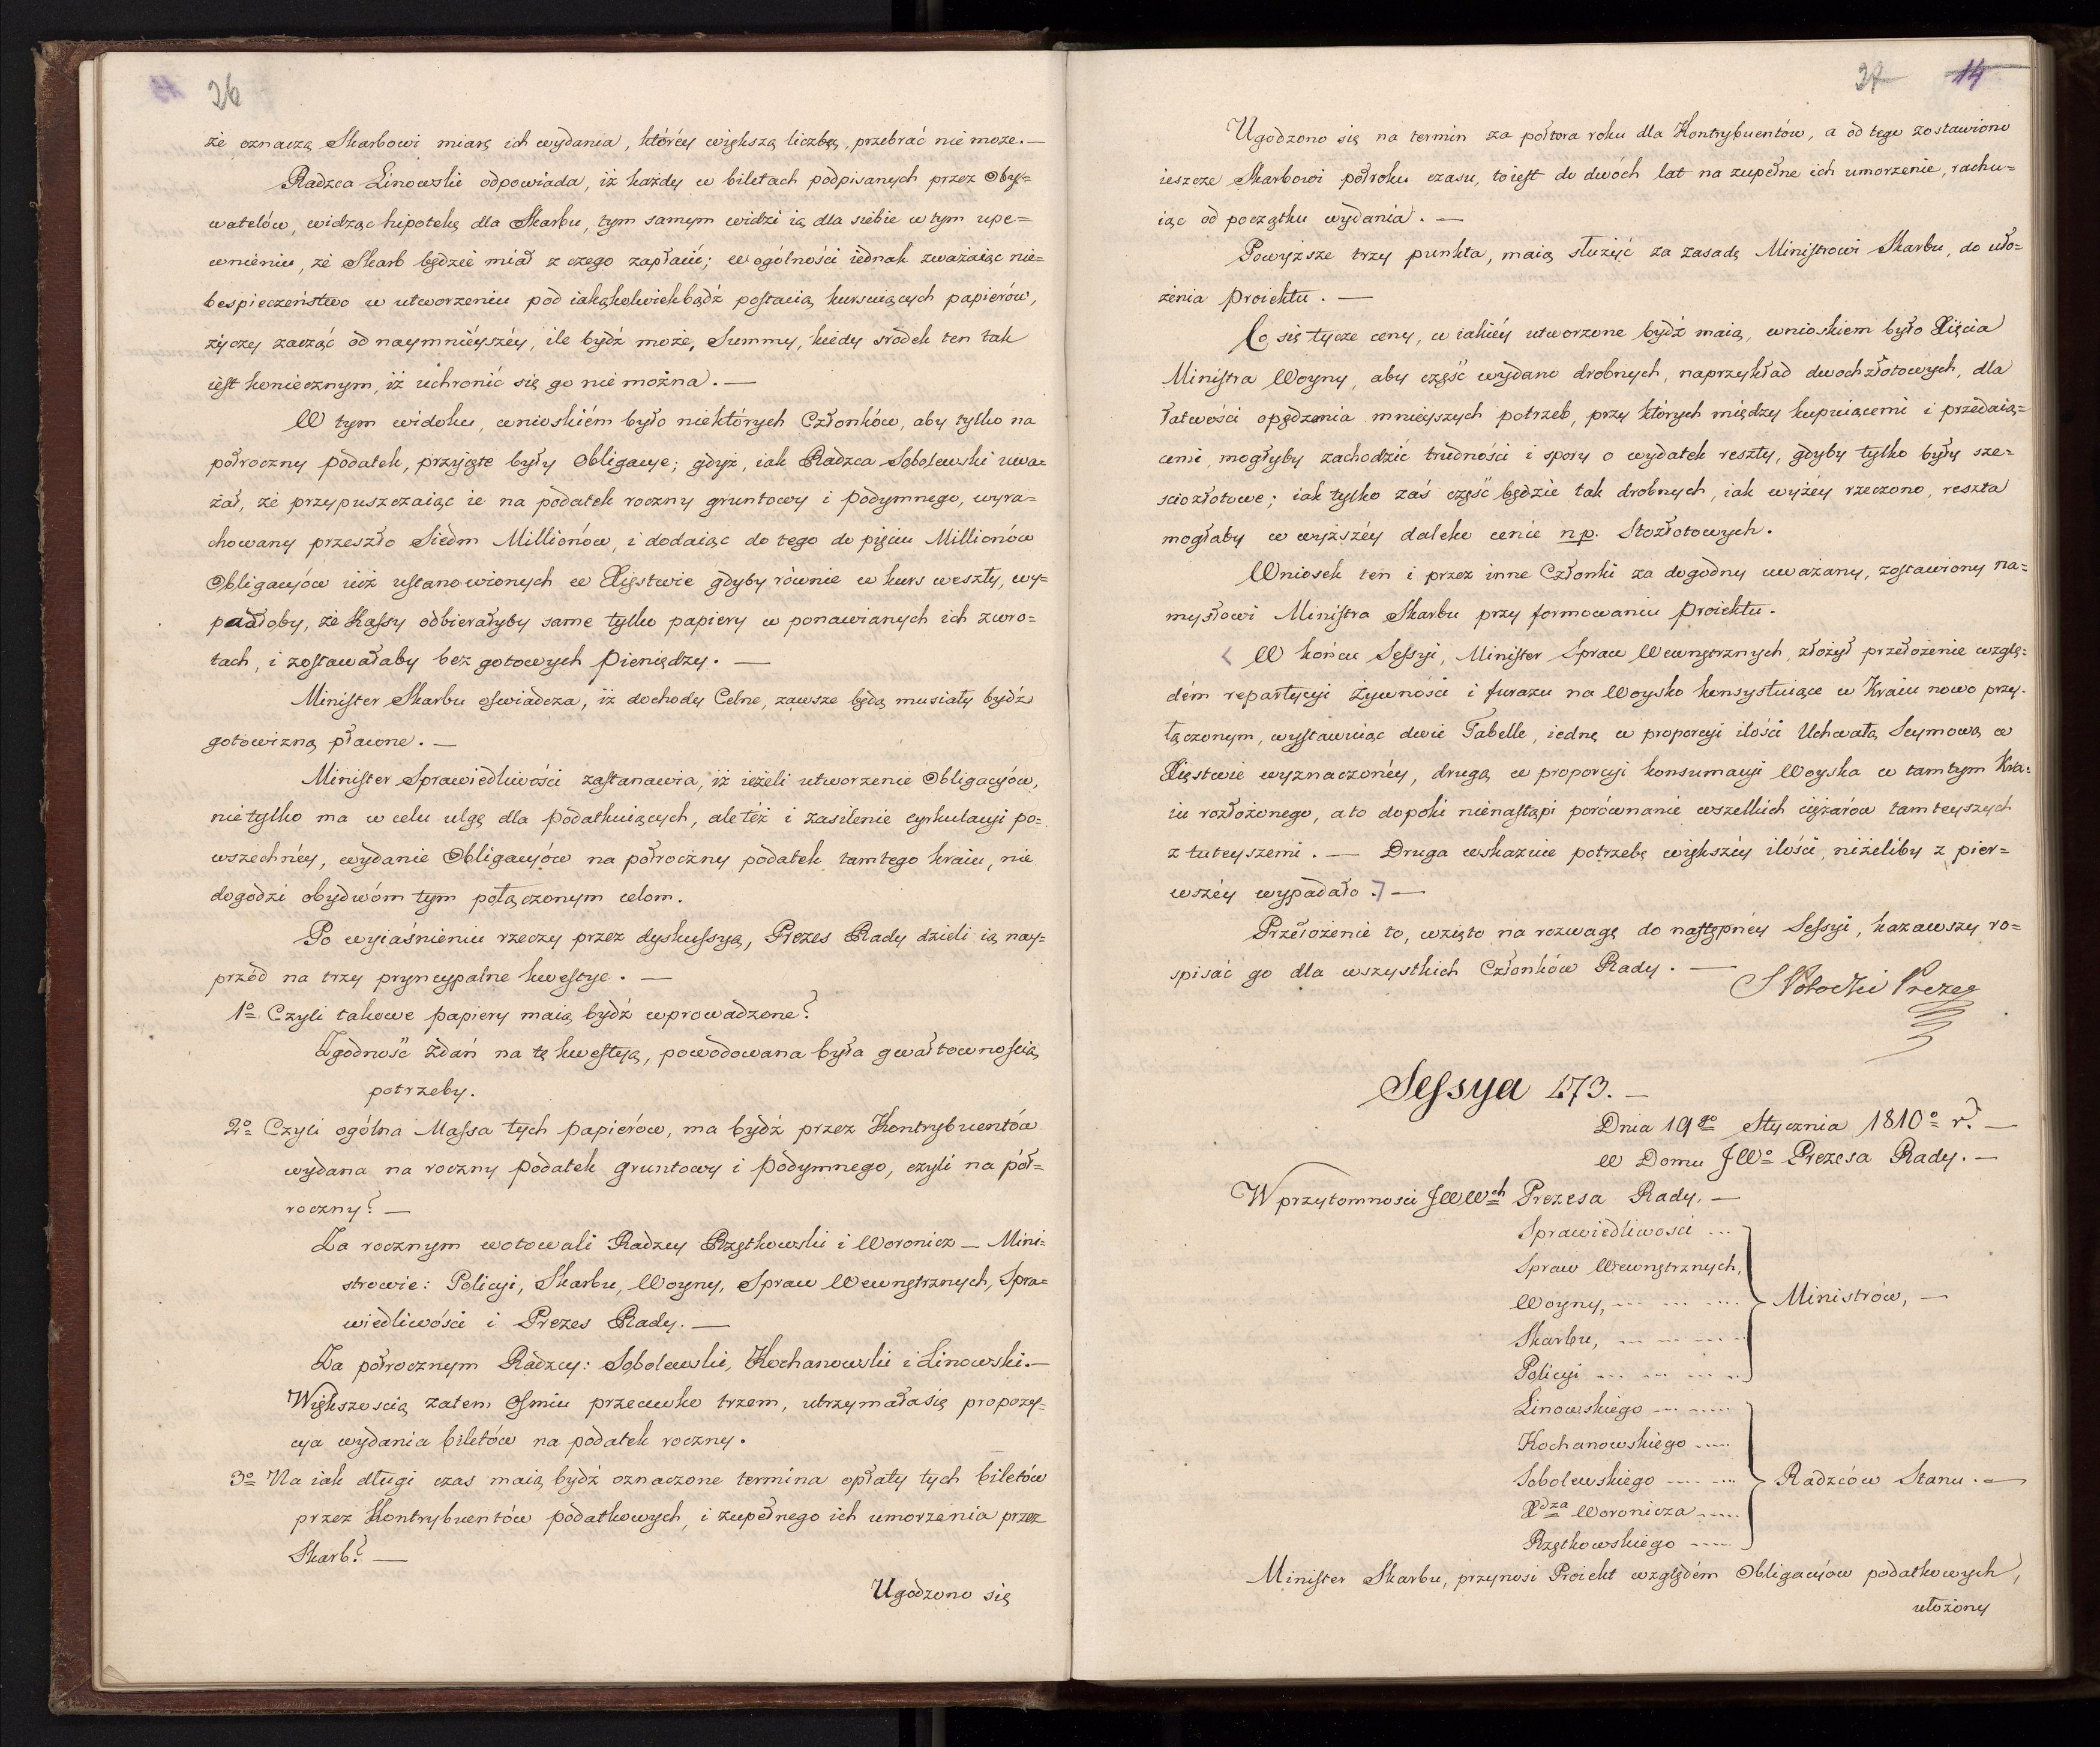 26
że oznaczą Skarbowi miarę ich wydania, któréy większą liczbę, przebrać nie może. —
Radzca Linowski odpowiada, iż każdy w biletach podpisanych przez Oby-
watelów, widząc hipotekę dla Skarbu, tym samym widzi ią dla siebie w tym upe-
wnieniu, że Skarb będzie miał z czego zapłacić; w ogólności iednak zważaiąc nie-
bespieczeństwo w utworzeniu pod iakążkolwiekbądź postacią kursuiących papierów,
życzy zacząć od naymniéyszéy, ile bydź może, Summy, kiedy srodek ten tak
iest koniecznym, iż uchronić się go nie można. —
W tym widoku, wnioskiém było niektórych Członków, aby tylko na
półroczny podatek, przyięte były Obligacye; gdyż, iak Radzca Sobolewski uwa-
żał, że przypuszczaiąc ie na podatek roczny gruntowy i podymnego, wyra-
chowany przeszło Siedm Millionów, i dodaiąc do tego do pięciu Millionów
Obligacyów iuż ustanowionych w Xięstwie gdyby równie w kurs weszły, wy-
padłoby, że Kassy odbierałyby same tylko papiery w ponawianych ich zwro-
tach, i zostawałaby bez gotowych pieniędzy. —
Minister Skarbu oswiadcza, iż dochody Celne, zawsze będą musiały bydź
gotowizną płacone. —
Minister Sprawiedliwości zastanawia, iż ieżeli utworzenie Obligacyów,
nie tylko ma w celu ulgę dla podatkuiących, ale téż i zasilenie cyrkulacyi po-
wszechnéy, wydanie Obligacyów na półroczny podatek tamtego kraiu, nie
dogodzi obydwóm tym połączonym celom.
Po wyiaśnieniu rzeczy przez dyskussyą, Prezes Rady dzieli ią nay-
przód na trzy pryncypalne kwestye. —
1º Czyli takowe papiery maią bydź wprowadzone?
Zgodność Zdań na tę kwestyą, powodowana była gwałtownością
potrzeby.
2º Czyli ogólna Massa tych papierów, ma bydź przez Kontrybuentów
wydana na roczny podatek gruntowy i podymnego, czyli na pół-
roczny? —
Za rocznym wotowali Radzcy Rzętkowski i Woronicz — Mini-
strowie: Policyi, Skarbu, Woyny, Spraw Wewnętrznych, Spra-
wiedliwości i Prezes Rady. —
Za półrocznym Radzcy: Sobolewski, Kochanowski i Linowski. —
Większoscią zatem Osmiu przeciwko trzem, utrzymała się propozy-
cya wydania biletów na podatek roczny.
3º Na iak długi czas maią bydź oznaczone termina opłaty tych biletów
przez Kontrybuentów podatkowych, i zupełnego ich umorzenia przez
Skarb? —
Ugodzono się
27 14
Ugodzono się na termin za półtora roku dla Kontrybuentów, a od tego zostawiono
ieszcze Skarbowi półroku czasu, to iest do dwóch lat na zupełne ich umorzenie, rachu-
iąc od początku wydania. —
Powyższe trzy punkta, maią służyć za zasadę Ministrowi Skarbu, do uło-
żenia proiektu. —
Co się tycze ceny, w iakiéy utworzone bydź maią, wnioskiem było Xięcia
Ministra Woyny, aby część wydano drobnych, naprzykład dwochzłotowych, dla
łatwości opędzenia mnieyszych potrzeb, przy których między kupuiącemi i przedaią-
cemi, mogłyby zachodzić trudności i spory o wydatek reszty, gdyby tylko były sze-
sciozłotowe; iak tylko zaś część będzie tak drobnych, iak wyżey rzeczono, reszta
mogłaby w wyższéy daleko cenie np. Stozłotowych.
Wniosek ten i przez inne Członki za dogodny uważany, zostawiony na-
mysłowi Ministra Skarbu przy formowaniu proiektu.
W końcu Sessyi, Minister Spraw Wewnętrznych, złożył przełożenie wzglę-
dém repartycyi żywności i furażu na Woysko konsystuiące w Kraiu nowo przy-
łączonym, wystawuiąc dwie Tabelle, iednę w proporcyi ilości Uchwałą Seymową w
Xięstwie wyznaczonéy, drugą w proporcyi konsumacyi Woyska w tamtym Kra-
iu rozłożonego, a to dopóki nienastąpi porównanie wszelkich ciężarów tamteyszych
z tuteyszemi. — Druga wskazuie potrzebę większéy ilości, niżeliby z pier-
wszéy wypadało. —
Przełożenie to, wzięto na rozwagę do następnéy Sessyi, kazawszy ro-
spisać go dla wszystkich Członków Rady. —
S Potocki Prezes
Sessya 473. —
Dnia 19go Stycznia 1810º r. —
W Domu JWº Prezesa Rady. —
W przytomnosci JWWch Prezesa Rady, —
Sprawiedliwosci ...
Spraw Wewnętrznych,
Woyny, ... ... ... Ministrów, —
Skarbu, ... ... ...
Policyi ... ... ...
Linowskiego ... ...
Kochanowskiego ...
Sobolewskiego ... ... Radzców Stanu. —
Xdza Woronicza ...
Rzętkowskiego ...
Minister Skarbu, przynosi Proiekt względém Obligacyów podatkowych,
ułożony